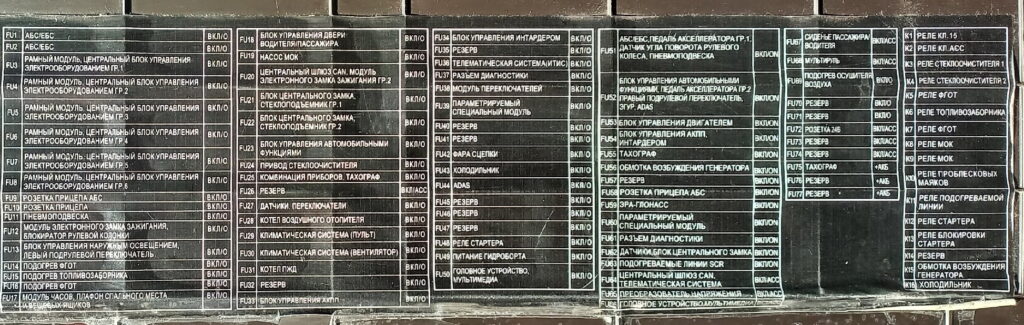 FU1 АБС/ЕБС ВКЛ/О
FU2 АБС/ЕБС ВКЛ/О
FU3 РАМНЫЙ МОДУЛЬ, ЦЕНТРАЛЬНЫЙ БЛОК УПРАВЛЕНИЯ
ЭЛЕКТРООБОРУДОВАНИЕМ ГР.1 ВКЛ/О
FU4 РАМНЫЙ МОДУЛЬ, ЦЕНТРАЛЬНЫЙ БЛОК УПРАВЛЕНИЯ
ЭЛЕКТРООБОРУДОВАНИЕМ ГР.2 ВКЛ/О
FU5 РАМНЫЙ МОДУЛЬ, ЦЕНТРАЛЬНЫЙ БЛОК УПРАВЛЕНИЯ
ЭЛЕКТРООБОРУДОВАНИЕМ ГР.3 ВКЛ/О
FU6 РАМНЫЙ МОДУЛЬ, ЦЕНТРАЛЬНЫЙ БЛОК УПРАВЛЕНИЯ
ЭЛЕКТРООБОРУДОВАНИЕМ ГР.4 ВКЛ/О
FU7 РАМНЫЙ МОДУЛЬ, ЦЕНТРАЛЬНЫЙ БЛОК УПРАВЛЕНИЯ
ЭЛЕКТРООБОРУДОВАНИЕМ ГР.5 ВКЛ/О
FU8 РАМНЫЙ МОДУЛЬ, ЦЕНТРАЛЬНЫЙ БЛОК УПРАВЛЕНИЯ
ЭЛЕКТРООБОРУДОВАНИЕМ ГР.6 ВКЛ/О
FU9 РОЗЕТКА ПРИЦЕПА АБС ВКЛ/О
FU10 РОЗЕТКА ПРИЦЕПА ВКЛ/О
FU11 ПНЕВМОПОДВЕСКА ВКЛ/О
FU12 МОДУЛЬ ЭЛЕКТРОННОГО ЗАМКА ЗАЖИГАНИЯ,
БЛОКИРАТОР РУЛЕВОЙ КОЛОНКИ ВКЛ/О
FU13 БЛОК УПРАВЛЕНИЯ НАРУЖНЫМ ОСВЕЩЕНИЕМ,
ЛЕВЫЙ ПОДРУЛЕВОЙ ПЕРЕКЛЮЧАТЕЛЬ ВКЛ/О
FU14 ПОДОГРЕВ ФГОТ ВКЛ/О
FU15 ПОДОГРЕВ ТОПЛИВОЗАБОРНИКА ВКЛ/О
FU16 ПОДОГРЕВ ФГОТ ВКЛ/О
FU17 МОДУЛЬ ЧАСОВ, ПЛАФОН СПАЛЬНОГО МЕСТА
И ВЕЩЕВЫХ ЯЩИКОВ ВКЛ/О
FU18 БЛОК УПРАВЛЕНИЯ ДВЕРИ
ВОДИТЕЛЯ/ПАССАЖИРА ВКЛ/О
FU19 НАСОС МОК ВКЛ/О
FU20 ЦЕНТРАЛЬНЫЙ ШЛЮЗ CAN, МОДУЛЬ
ЭЛЕКТРОННОГО ЗАМКА ЗАЖИГАНИЯ ГР.2 ВКЛ/О
FU21 БЛОК ЦЕНТРАЛЬНОГО ЗАМКА,
СТЕКЛОПОДЪЕМНИК ГР.1 ВКЛ/О
FU22 БЛОК ЦЕНТРАЛЬНОГО ЗАМКА,
СТЕКЛОПОДЪЕМНИК ГР.2 ВКЛ/О
FU23 БЛОК УПРАВЛЕНИЯ АВТОМОБИЛЬНЫМИ
ФУНКЦИЯМИ ВКЛ/О
FU24 ПРИВОД СТЕКЛООЧИСТИТЕЛЯ ВКЛ/О
FU25 КОМБИНАЦИЯ ПРИБОРОВ, ТАХОГРАФ ВКЛ/О
FU26 РЕЗЕРВ ВКЛ/АСС
FU27 ДАТЧИКИ, ПЕРЕКЛЮЧАТЕЛИ ВКЛ/О
FU28 КОТЕЛ ВОЗДУШНОГО ОТОПИТЕЛЯ ВКЛ/О
FU29 КЛИМАТИЧЕСКАЯ СИСТЕМА (ПУЛЬТ) ВКЛ/О
FU30 КЛИМАТИЧЕСКАЯ СИСТЕМА (ВЕНТИЛЯТОР) ВКЛ/О
FU31 КОТЕЛ ПЖД ВКЛ/О
FU32 РЕЗЕРВ ВКЛ/О
FU33 БЛОК УПРАВЛЕНИЯ АКПП ВКЛ/О
FU34 БЛОК УПРАВЛЕНИЯ ИНТАРДЕРОМ ВКЛ/О
FU35 РЕЗЕРВ ВКЛ/О
FU36 ТЕЛЕМАТИЧЕСКАЯ СИСТЕМА(ИТИС) ВКЛ/О
FU37 РАЗЪЕМ ДИАГНОСТИКИ ВКЛ/О
FU38 МОДУЛЬ ПЕРЕКЛЮЧАТЕЛЕЙ ВКЛ/О
FU39 ПАРАМЕТРИРУЕМЫЙ
СПЕЦИАЛЬНЫЙ МОДУЛЬ ВКЛ/О
FU40 РЕЗЕРВ ВКЛ/О
FU41 РЕЗЕРВ ВКЛ/О
FU42 ФАРА СЦЕПКИ ВКЛ/О
FU43 ХОЛОДИЛЬНИК ВКЛ/О
FU44 ADAS ВКЛ/О
FU45 РЕЗЕРВ ВКЛ/О
FU46 РЕЗЕРВ ВКЛ/О
FU47 РЕЗЕРВ ВКЛ/О
FU48 РЕЛЕ СТАРТЕРА ВКЛ/О
FU49 ПИТАНИЕ ГИДРОБОРТА ВКЛ/О
FU50 ГОЛОВНОЕ УСТРОЙСТВО,
МУЛЬТИМЕДИА ВКЛ/О
FU51 АБС/ЕБС,ПЕДАЛЬ АКСЕЛЕРАТОРА ГР.1,
ДАТЧИК УГЛА ПОВОРОТА РУЛЕВОГО
КОЛЕСА, ПНЕВМОПОДВЕСКА ВКЛ/ION
FU52 БЛОК УПРАВЛЕНИЯ АВТОМОБИЛЬНЫМИ
ФУНКЦИЯМИ, ПЕДАЛЬ АКСЕЛЕРАТОРА ГР.2
ПРАВЫЙ ПОДРУЛЕВОЙ ПЕРЕКЛЮЧАТЕЛЬ,
ЭГУР, ADAS ВКЛ/ION
FU53 БЛОК УПРАВЛЕНИЯ ДВИГАТЕЛЕМ ВКЛ/ION
FU54 БЛОК УПРАВЛЕНИЯ АКПП,
ИНТАРДЕРОМ ВКЛ/ION
FU55 ТАХОГРАФ ВКЛ/ION
FU56 ОБМОТКА ВОЗБУЖДЕНИЯ ГЕНЕРАТОРА ВКЛ/ION
FU57 РЕЗЕРВ ВКЛ/ION
FU58 РОЗЕТКА ПРИЦЕПА АБС ВКЛ/ION
FU59 ЭРА-ГЛОНАСС ВКЛ/ION
FU60 ПАРАМЕТРИРУЕМЫЙ
СПЕЦИАЛЬНЫЙ МОДУЛЬ ВКЛ/ION
FU61 РАЗЪЕМ ДИАГНОСТИКИ ВКЛ/ION
FU62 ДАТЧИКИ,БЛОК ЦЕНТРАЛЬНОГО ЗАМКА ВКЛ/ION
FU63 ПОДОГРЕВАЕМЫЕ ЛИНИИ SCR ВКЛ/ION
FU64 ЦЕНТРАЛЬНЫЙ ШЛЮЗ CAN,
ТЕЛЕМАТИЧЕСКАЯ СИСТЕМА ВКЛ/ION
FU65 ПРЕОБРАЗОВАТЕЛЬ НАПРЯЖЕНИЯ ВКЛ/АСС
FU66 ГОЛОВНОЕ УСТРОЙСТВО,МУЛЬТИМЕДИА
FU67 СИДЕНЬЕ ПАССАЖИРА/
ВОДИТЕЛЯ ВКЛ/АСС
FU68 МУЛЬТИРУЛЬ ВКЛ/АСС
FU69 ПОДОГРЕВ ОСУШИТЕЛЯ
ВОЗДУХА ВКЛ/ION
FU70 РЕЗЕРВ ВКЛ/О
FU71 РЕЗЕРВ ВКЛ/ION
FU72 РОЗЕТКА 24В ВКЛ/АСС
FU73 РЕЗЕРВ ВКЛ/ION
FU74 РЕЗЕРВ ВКЛ/АСС
FU75 ТАХОГРАФ +АКБ
FU76 РЕЗЕРВ +АКБ
FU77 РЕЗЕРВ +АКБ
K1 РЕЛЕ КЛ.15
K2 РЕЛЕ КЛ.АСС
K3 РЕЛЕ СТЕКЛООЧИСТИТЕЛЯ 1
K4 РЕЛЕ СТЕКЛООЧИСТИТЕЛЯ 2
K5 РЕЛЕ ФГОТ
K6 РЕЛЕ ТОПЛИВОЗАБОРНИКА
K7 РЕЛЕ ФГОТ
K8 РЕЛЕ МОК
K9 РЕЛЕ МОК
K10 РЕЛЕ ПРОБЛЕСКОВЫХ
МАЯКОВ
K11 РЕЛЕ ПОДОГРЕВАЕМОЙ
ЛИНИИ
K12 РЕЛЕ СТАРТЕРА
K13 РЕЛЕ БЛОКИРОВКИ
СТАРТЕРА
K14 РЕЛЕ
K15 ОБМОТКА ВОЗБУЖДЕНИЯ
ГЕНЕРАТОРА
K16 ХОЛОДИЛЬНИК